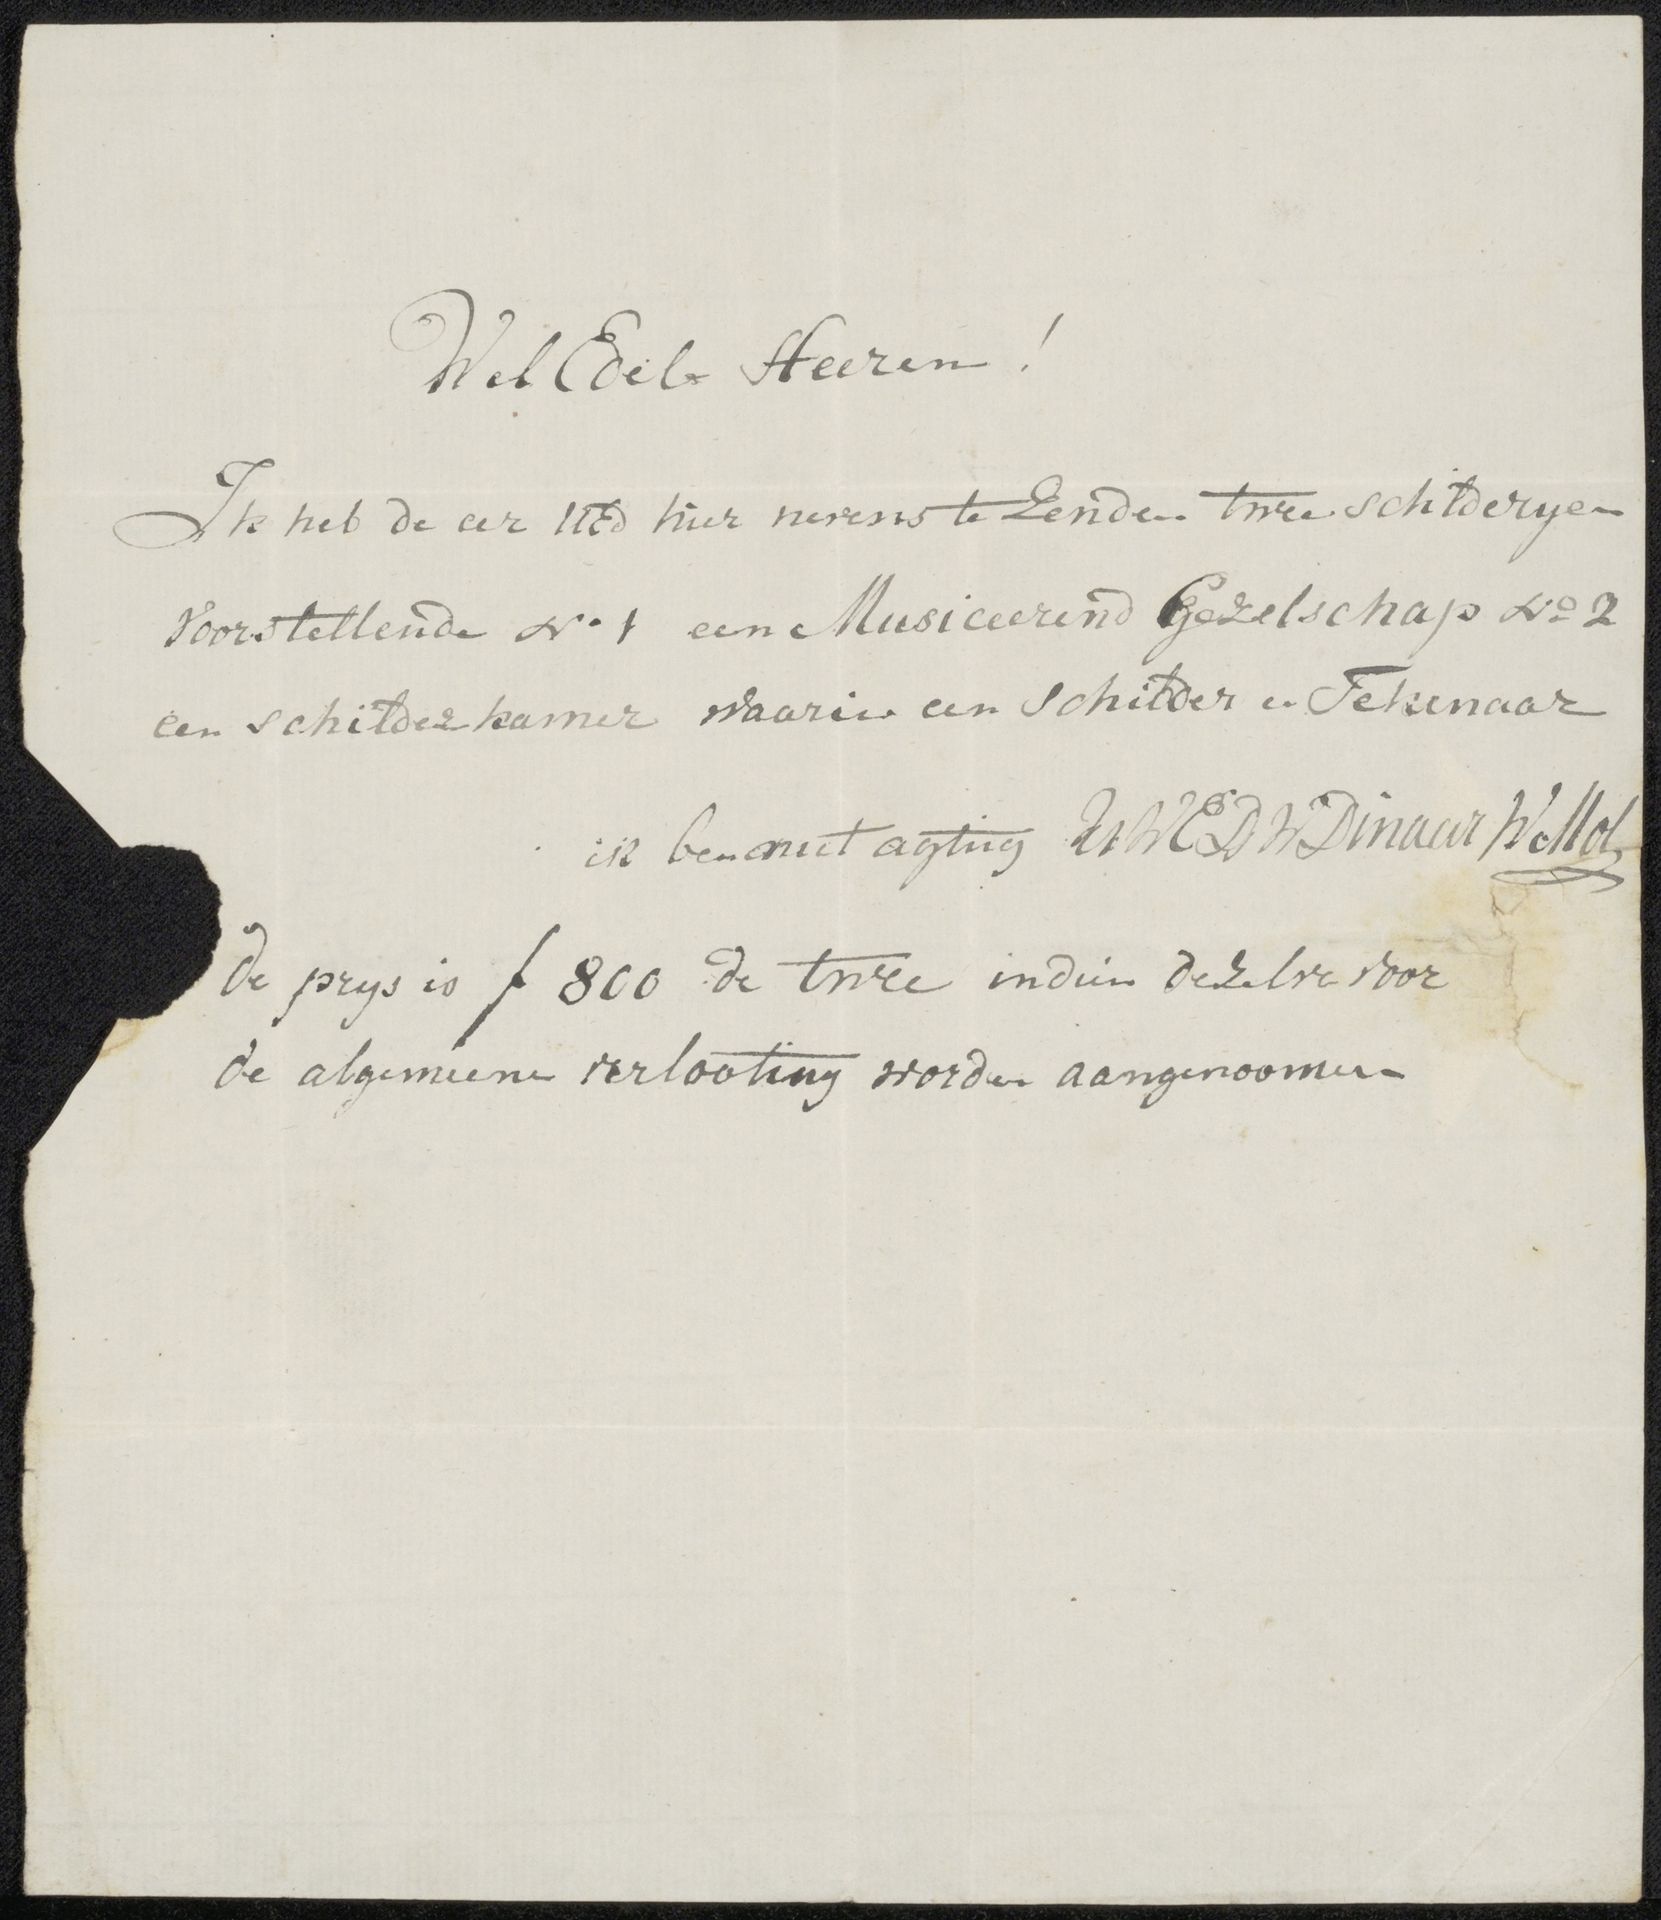 Wel Edele Heeren!
Ik heb de eer UEd hier nevens te Zenden twee schilderyen
Voorstellende No 1 een Musiceerend Gezelschap No 2
een schilderkamer waarin een Schilder en Tekenaar
ik ben met agting UWEDWDinaar WMol
de prys is f 800 de twee indien dezelve voor
de algemeene verlooting worden aangenoomen